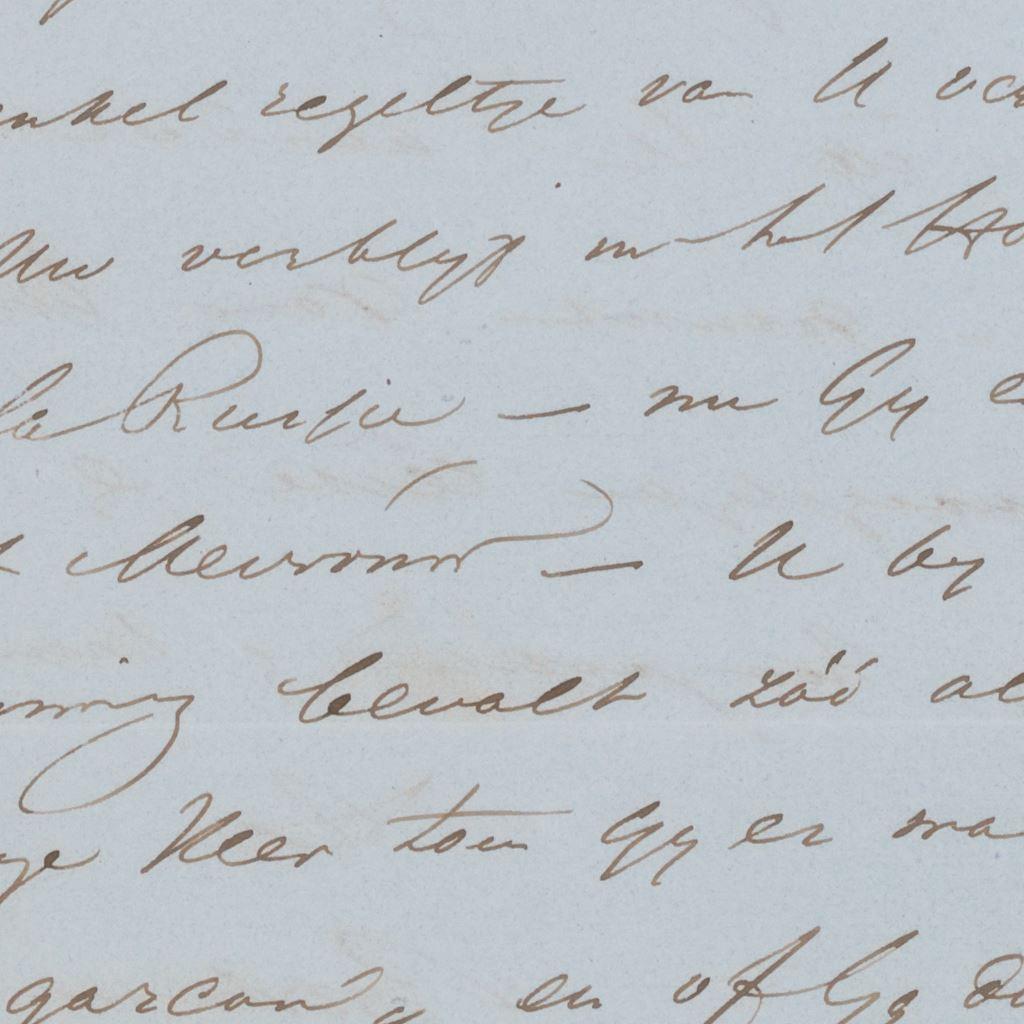 enkel regeltje van U ver
Uw verblijf in het Ho
la Russie — nu Gy e
t Mevrouw — U by
nning bevalt zóó al
ge Heer toen Gy er wa
garcon, en of Gy